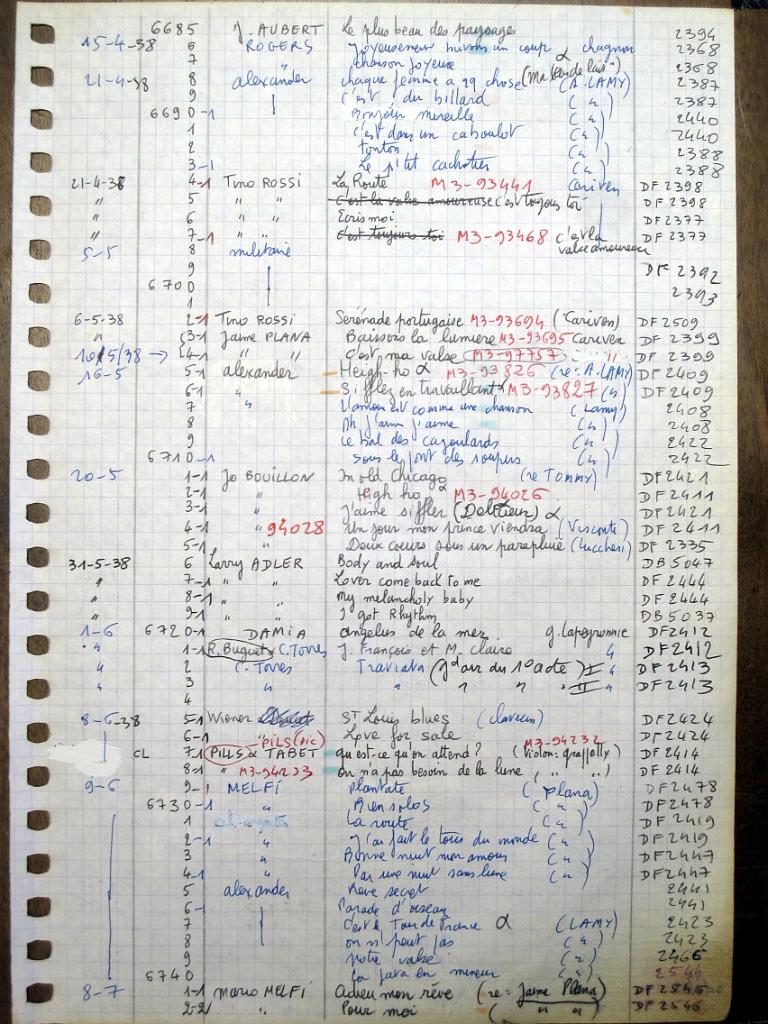 6685 J. AUBERT Le plus beau des paysages 2394
15-4-38 6 ROGERS Joyeusement buvons un coup α chagrin 2368
7 " chanson joyeuse 2368
21-4-38 8 alexander chaque femme a qq chose (A. LAMY) 2387
9 C'est du billard (") 2387
6690-1 Bonjour mireille (") 2440
1 C'est dans un caboulot (") 2440
2 Tonton (") 2388
3-1 Le p'tit cachotier (") 2388
21-4-38 4-1 Tino ROSSI La Route M3-93441 Cariven DF 2398
" 5 " " c'est la valse amoureuse c'est toujours toi DF 2398
" 6 " " Ecris moi DF 2377
" 7-1 " " c'est toujours toi M3-93468 c'est la valse amoureuse DF 2377
5-5 8 militaire
9 DF 2392
6700 2393
1
6-5-38 2-1 Tino ROSSI Sérénade portugaise M3-93694 (Cariven) DF 2509
" 3-1 Jaime PLANA Baissons la lumiere M3-93695 Cariven DF 2399
10/5/38 → 4-1 " " C'est ma valse M3-97757 " " DF 2399
16-5 5-1 alexander Heigh-ho α M3-93826 (re: A. LAMY) DF 2409
6-1 " Sifflez en travaillant α M3-93827 (") DF 2409
7 " L'amour est comme une chanson (Lamy) 2408
8 Ah j'aim' j'aime (") 2408
9 Le bal des cagoulards (") 2422
6710-1 Sous le pont des soupirs (") 2422
20-5 1-1 Jo BOUILLON In old Chicago (re TOMMY) DF 2421
2-1 " High ho α M3-94026 DF 2411
3-1 " J'aime siffler (Delettieur) α DF 2421
4-1 " 94028 Un jour mon prince viendra (Visconte) DF 2411
5-1 " Deux coeurs sous un parapluie (Lucchesi) DF 2335
31-5-38 6 Larry ADLER Body and soul DB 5047
" 7-1 " " Lover come back to me DF 2444
" 8-1 " " My melancholy baby DF 2444
" 9-1 " " I got Rhythm DB 5037
1-6 6720-1 DAMIA angelus de la mer g. Lapeyronnie DF 2412
" 1-1 R. Buguet & C. Torres J. François et M. Claire " DF 2412
" 2 C. Torres Traviata (gd air du 1° acte) I " DF 2413
" 3 " " " " II " DF 2413
4
8-6-38 5-1 Wiener St Louis blues (clavecin) DF 2424
6-1 " PILS (pic) Love for sale M3-94232 DF 2424
CL 7-1 PILLS & TABET qu'est-ce qu'on attend? (Violon: grappelly) DF 2414
8-1 " M3-94233 On n'a pas besoin de la lune (" ") DF 2414
9-6 9-1 MELFI Plantate (Plana) DF 2478
6730-1 " Bien solos (") DF 2478
1 La route (") DF 2419
2-1 " J'ai fait le tour du monde (") DF 2419
3 " Bonne nuit mon amour (") DF 2447
4-1 " Par une nuit sans lune (") DF 2447
5 alexander Reve secret 2441
6-1 Parade d'oiseau 2441
7 C'est le Tour de France α (LAMY) 2423
8 on n' peut pas (") 2423
9 Notre valse (") 2466
6740 La java en mineur (") 2544
8-7 1-1 Mario MELFI Adieu mon rêve (re= Jaime Plana) DF 2546
2-2 " Pour moi (" ") DF 2546